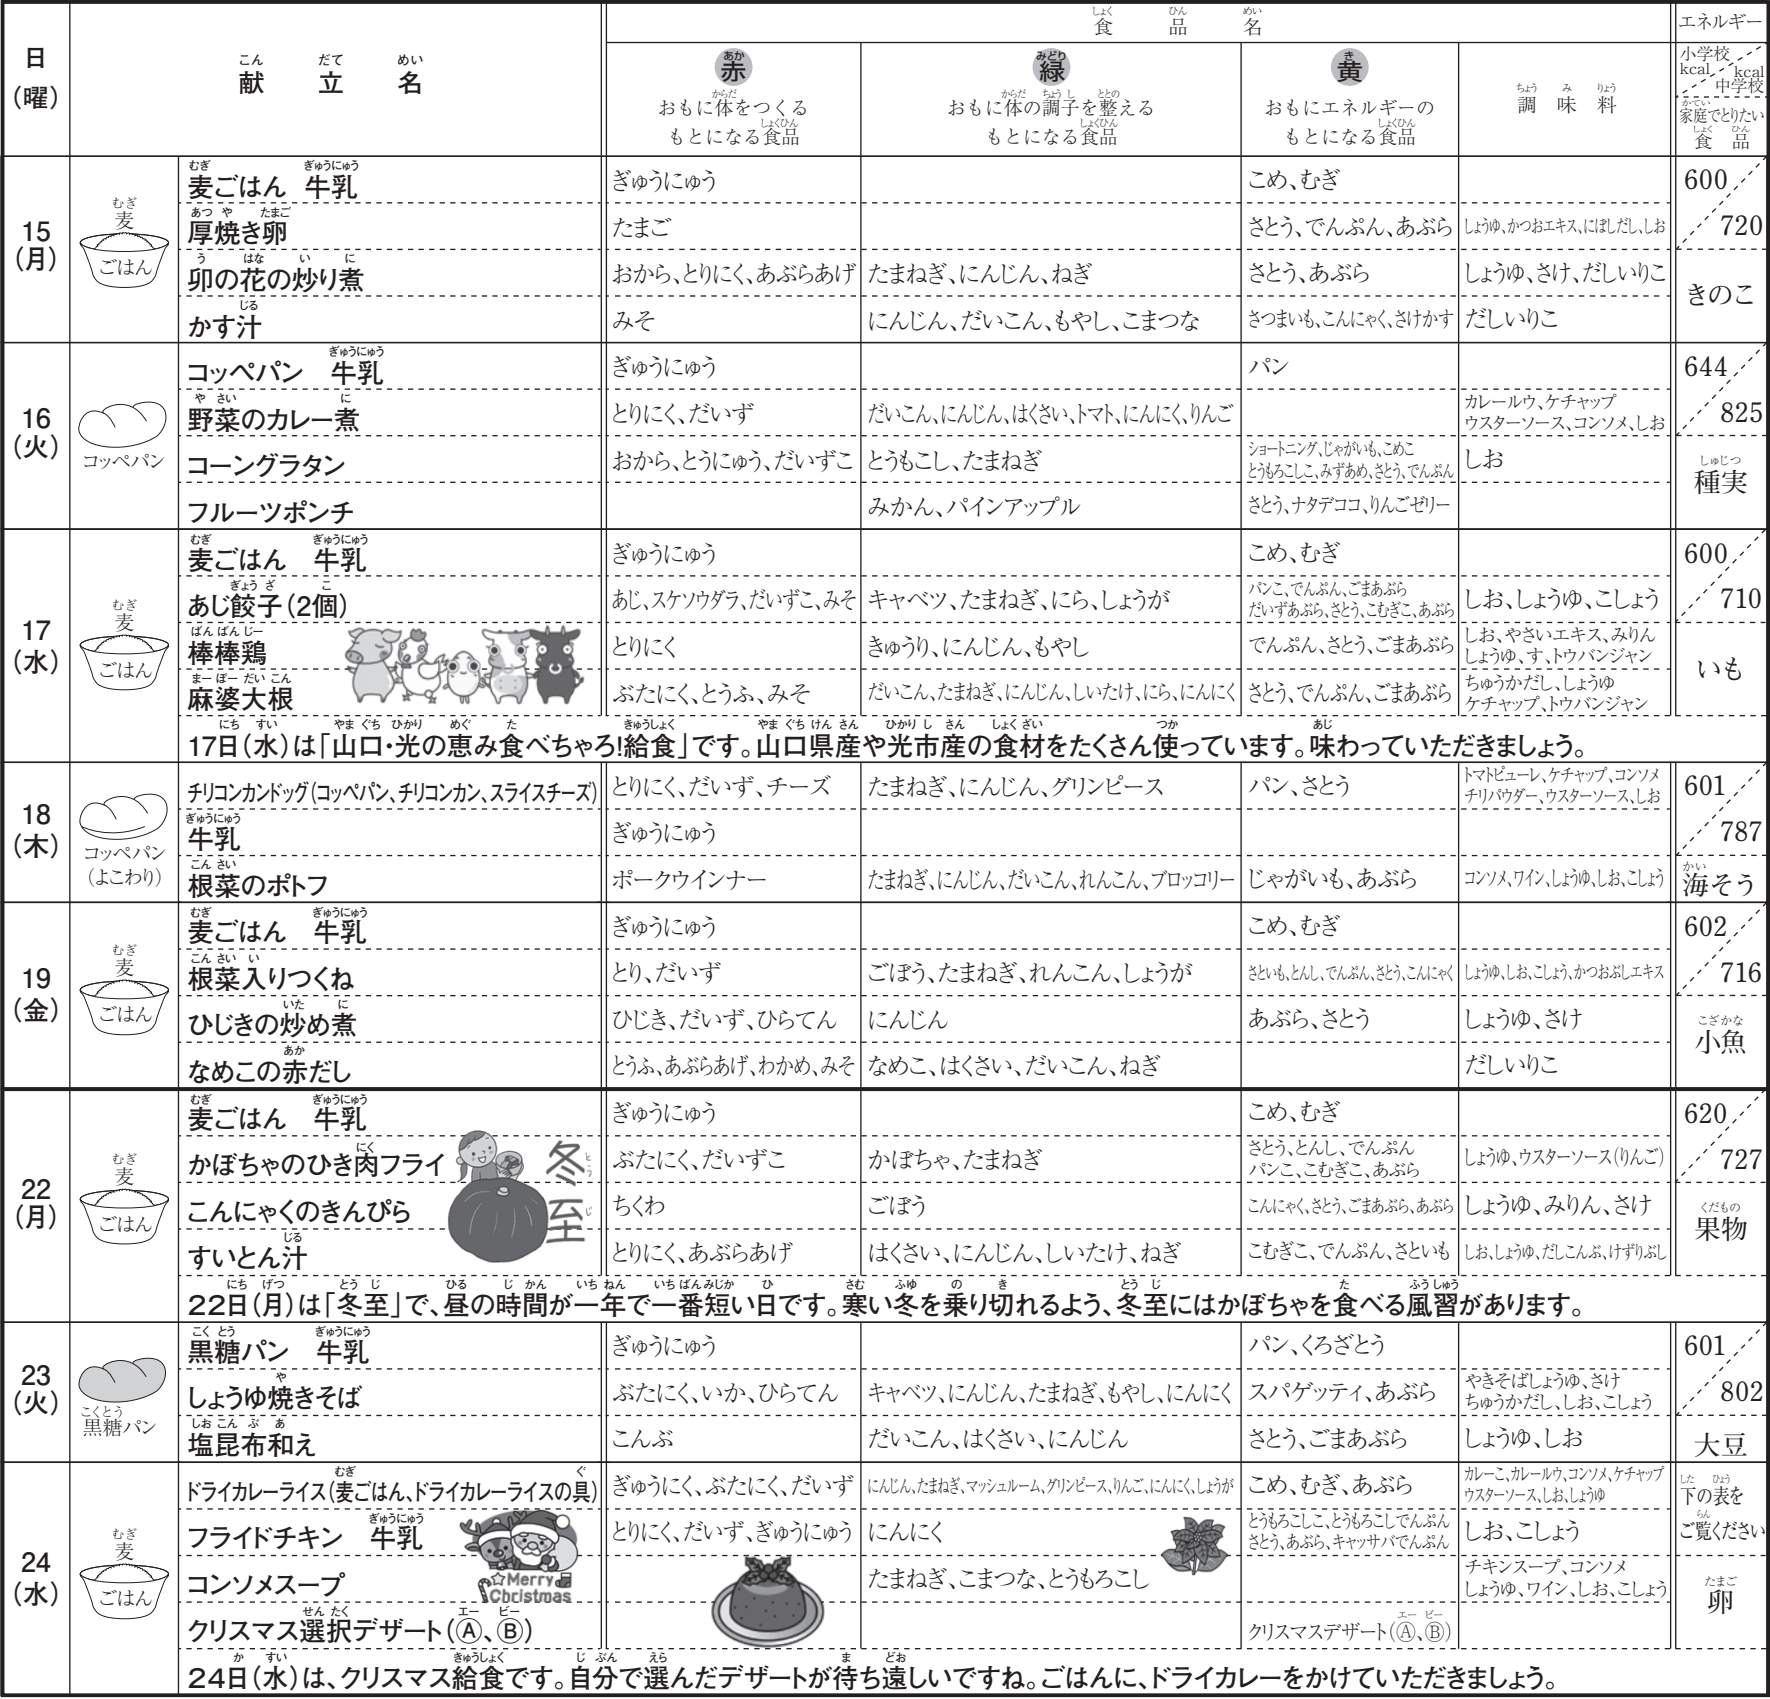 日
(曜)
献立名
こん だて めい
食品名
しょく ひん めい
赤
あか
おもに体をつくる
からだ
もとになる食品
しょくひん
緑
みどり
おもに体の調子を整える
からだ ちょうし ととの
もとになる食品
しょくひん
黄
き
おもにエネルギーの
もとになる食品
しょくひん
調味料
ちょう み りょう
エネルギー
小学校
kcal
kcal
中学校
家庭でとりたい
かてい
食品
しょく ひん
15
(月)
むぎ
麦
ごはん
むぎ ぎゅうにゅう
麦ごはん 牛乳
ぎゅうにゅう
こめ、むぎ
600
720
あつ や たまご
厚焼き卵
たまご
さとう、でんぷん、あぶら
しょうゆ、かつおエキス、にぼしだし、しお
う はな い に
卯の花の炒り煮
おから、とりにく、あぶらあげ
たまねぎ、にんじん、ねぎ
さとう、あぶら
しょうゆ、さけ、だしいりこ
きのこ
じる
かす汁
みそ
にんじん、だいこん、もやし、こまつな
さつまいも、こんにゃく、さけかす
だしいりこ
16
(火)
コッペパン
ぎゅうにゅう
コッペパン 牛乳
ぎゅうにゅう
パン
644
825
や さい に
野菜のカレー煮
とりにく、だいず
だいこん、にんじん、はくさい、トマト、にんにく、りんご
カレールウ、ケチャップ
ウスターソース、コンソメ、しお
コーングラタン
おから、とうにゅう、だいずこ
とうもこし、たまねぎ
ショートニング、じゃがいも、こめこ
とうもろこしこ、みずあめ、さとう、でんぷん
しお
しゅじつ
種実
フルーツポンチ
みかん、パインアップル
さとう、ナタデココ、りんごゼリー
17
(水)
むぎ
麦
ごはん
むぎ ぎゅうにゅう
麦ごはん 牛乳
ぎゅうにゅう
こめ、むぎ
600
710
ぎょう ざ こ
あじ餃子(2個)
あじ、スケソウダラ、だいずこ、みそ
キャベツ、たまねぎ、にら、しょうが
パンこ、でんぷん、ごまあぶら
だいずあぶら、さとう、こむぎこ、あぶら
しお、しょうゆ、こしょう
ばん ばん じー
棒棒鶏
とりにく
きゅうり、にんじん、もやし
でんぷん、さとう、ごまあぶら
しお、やさいエキス、みりん
しょうゆ、す、トウバンジャン
いも
まー ぼー だい こん
麻婆大根
ぶたにく、とうふ、みそ
だいこん、たまねぎ、にんじん、しいたけ、にら、にんにく
さとう、でんぷん、ごまあぶら
ちゅうかだし、しょうゆ
ケチャップ、トウバンジャン
にち すい やま ぐち ひかり めぐ た きゅうしょく やま ぐち けん さん ひかり し さん しょく ざい つか あじ
17日(水)は「山口・光の恵み食べちゃろ!給食」です。山口県産や光市産の食材をたくさん使っています。味わっていただきましょう。
18
(木)
コッペパン
(よこわり)
チリコンカンドッグ(コッペパン、チリコンカン、スライスチーズ)
とりにく、だいず、チーズ
たまねぎ、にんじん、グリンピース
パン、さとう
トマトピューレ、ケチャップ、コンソメ
チリパウダー、ウスターソース、しお
601
787
ぎゅうにゅう
牛乳
ぎゅうにゅう
こん さい
根菜のポトフ
ポークウインナー
たまねぎ、にんじん、だいこん、れんこん、ブロッコリー
じゃがいも、あぶら
コンソメ、ワイン、しょうゆ、しお、こしょう
かい
海そう
19
(金)
むぎ
麦
ごはん
むぎ ぎゅうにゅう
麦ごはん 牛乳
ぎゅうにゅう
こめ、むぎ
602
716
こん さい い
根菜入りつくね
とり、だいず
ごぼう、たまねぎ、れんこん、しょうが
さといも、とんし、でんぷん、さとう、こんにゃく
しょうゆ、しお、こしょう、かつおぶしエキス
いた に
ひじきの炒め煮
ひじき、だいず、ひらてん
にんじん
あぶら、さとう
しょうゆ、さけ
こざかな
小魚
あか
なめこの赤だし
とうふ、あぶらあげ、わかめ、みそ
なめこ、はくさい、だいこん、ねぎ
だしいりこ
22
(月)
むぎ
麦
ごはん
むぎ ぎゅうにゅう
麦ごはん 牛乳
ぎゅうにゅう
こめ、むぎ
620
727
にく
かぼちゃのひき肉フライ
冬至
とう じ
ぶたにく、だいずこ
かぼちゃ、たまねぎ
さとう、とんし、でんぷん
パンこ、こむぎこ、あぶら
しょうゆ、ウスターソース(りんご)
こんにゃくのきんぴら
ちくわ
ごぼう
こんにゃく、さとう、ごまあぶら、あぶら
しょうゆ、みりん、さけ
くだもの
果物
じる
すいとん汁
とりにく、あぶらあげ
はくさい、にんじん、しいたけ、ねぎ
こむぎこ、でんぷん、さといも
しお、しょうゆ、だしこんぶ、けずりぶし
にち げつ とう じ ひる じ かん いち ねん いち ばん みじか ひ さむ ふゆ の き とう じ た ふう しゅう
22日(月)は「冬至」で、昼の時間が一年で一番短い日です。寒い冬を乗り切れるよう、冬至にはかぼちゃを食べる風習があります。
23
(火)
こくとう
黒糖パン
こく とう ぎゅうにゅう
黒糖パン 牛乳
ぎゅうにゅう
パン、くろざとう
601
802
や
しょうゆ焼きそば
ぶたにく、いか、ひらてん
キャベツ、にんじん、たまねぎ、もやし、にんにく
スパゲッティ、あぶら
やきそばしょうゆ、さけ
ちゅうかだし、しお、こしょう
しお こん ぶ あ
塩昆布和え
こんぶ
だいこん、はくさい、にんじん
さとう、ごまあぶら
しょうゆ、しお
大豆
24
(水)
むぎ
麦
ごはん
むぎ ぐ
ドライカレーライス(麦ごはん、ドライカレーライスの具)
ぎゅうにく、ぶたにく、だいず
にんじん、たまねぎ、マッシュルーム、グリンピース、りんご、にんにく、しょうが
こめ、むぎ、あぶら
カレーこ、カレールウ、コンソメ、ケチャップ
ウスターソース、しお、しょうゆ
した ひょう
下の表を
らん
ご覧ください
ぎゅうにゅう
フライドチキン 牛乳
とりにく、だいず、ぎゅうにゅう
にんにく
とうもろこしこ、とうもろこしでんぷん
さとう、あぶら、キャッサバでんぷん
しお、こしょう
コンソメスープ
Merry
Christmas
たまねぎ、こまつな、とうもろこし
チキンスープ、コンソメ
しょうゆ、ワイン、しお、こしょう
たまご
卵
せん たく エー ビー
クリスマス選択デザート(Ⓐ、Ⓑ)
エー ビー
クリスマスデザート(Ⓐ、Ⓑ)
か すい きゅうしょく じ ぶん えら ま どお
24日(水)は、クリスマス給食です。自分で選んだデザートが待ち遠しいですね。ごはんに、ドライカレーをかけていただきましょう。